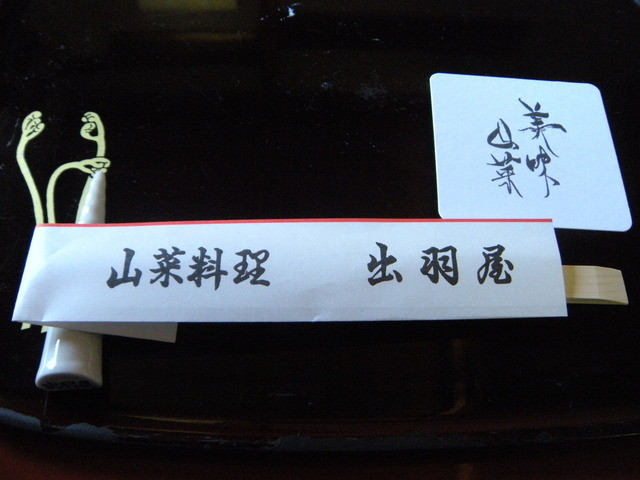 山菜料理 出羽屋
美味
山菜